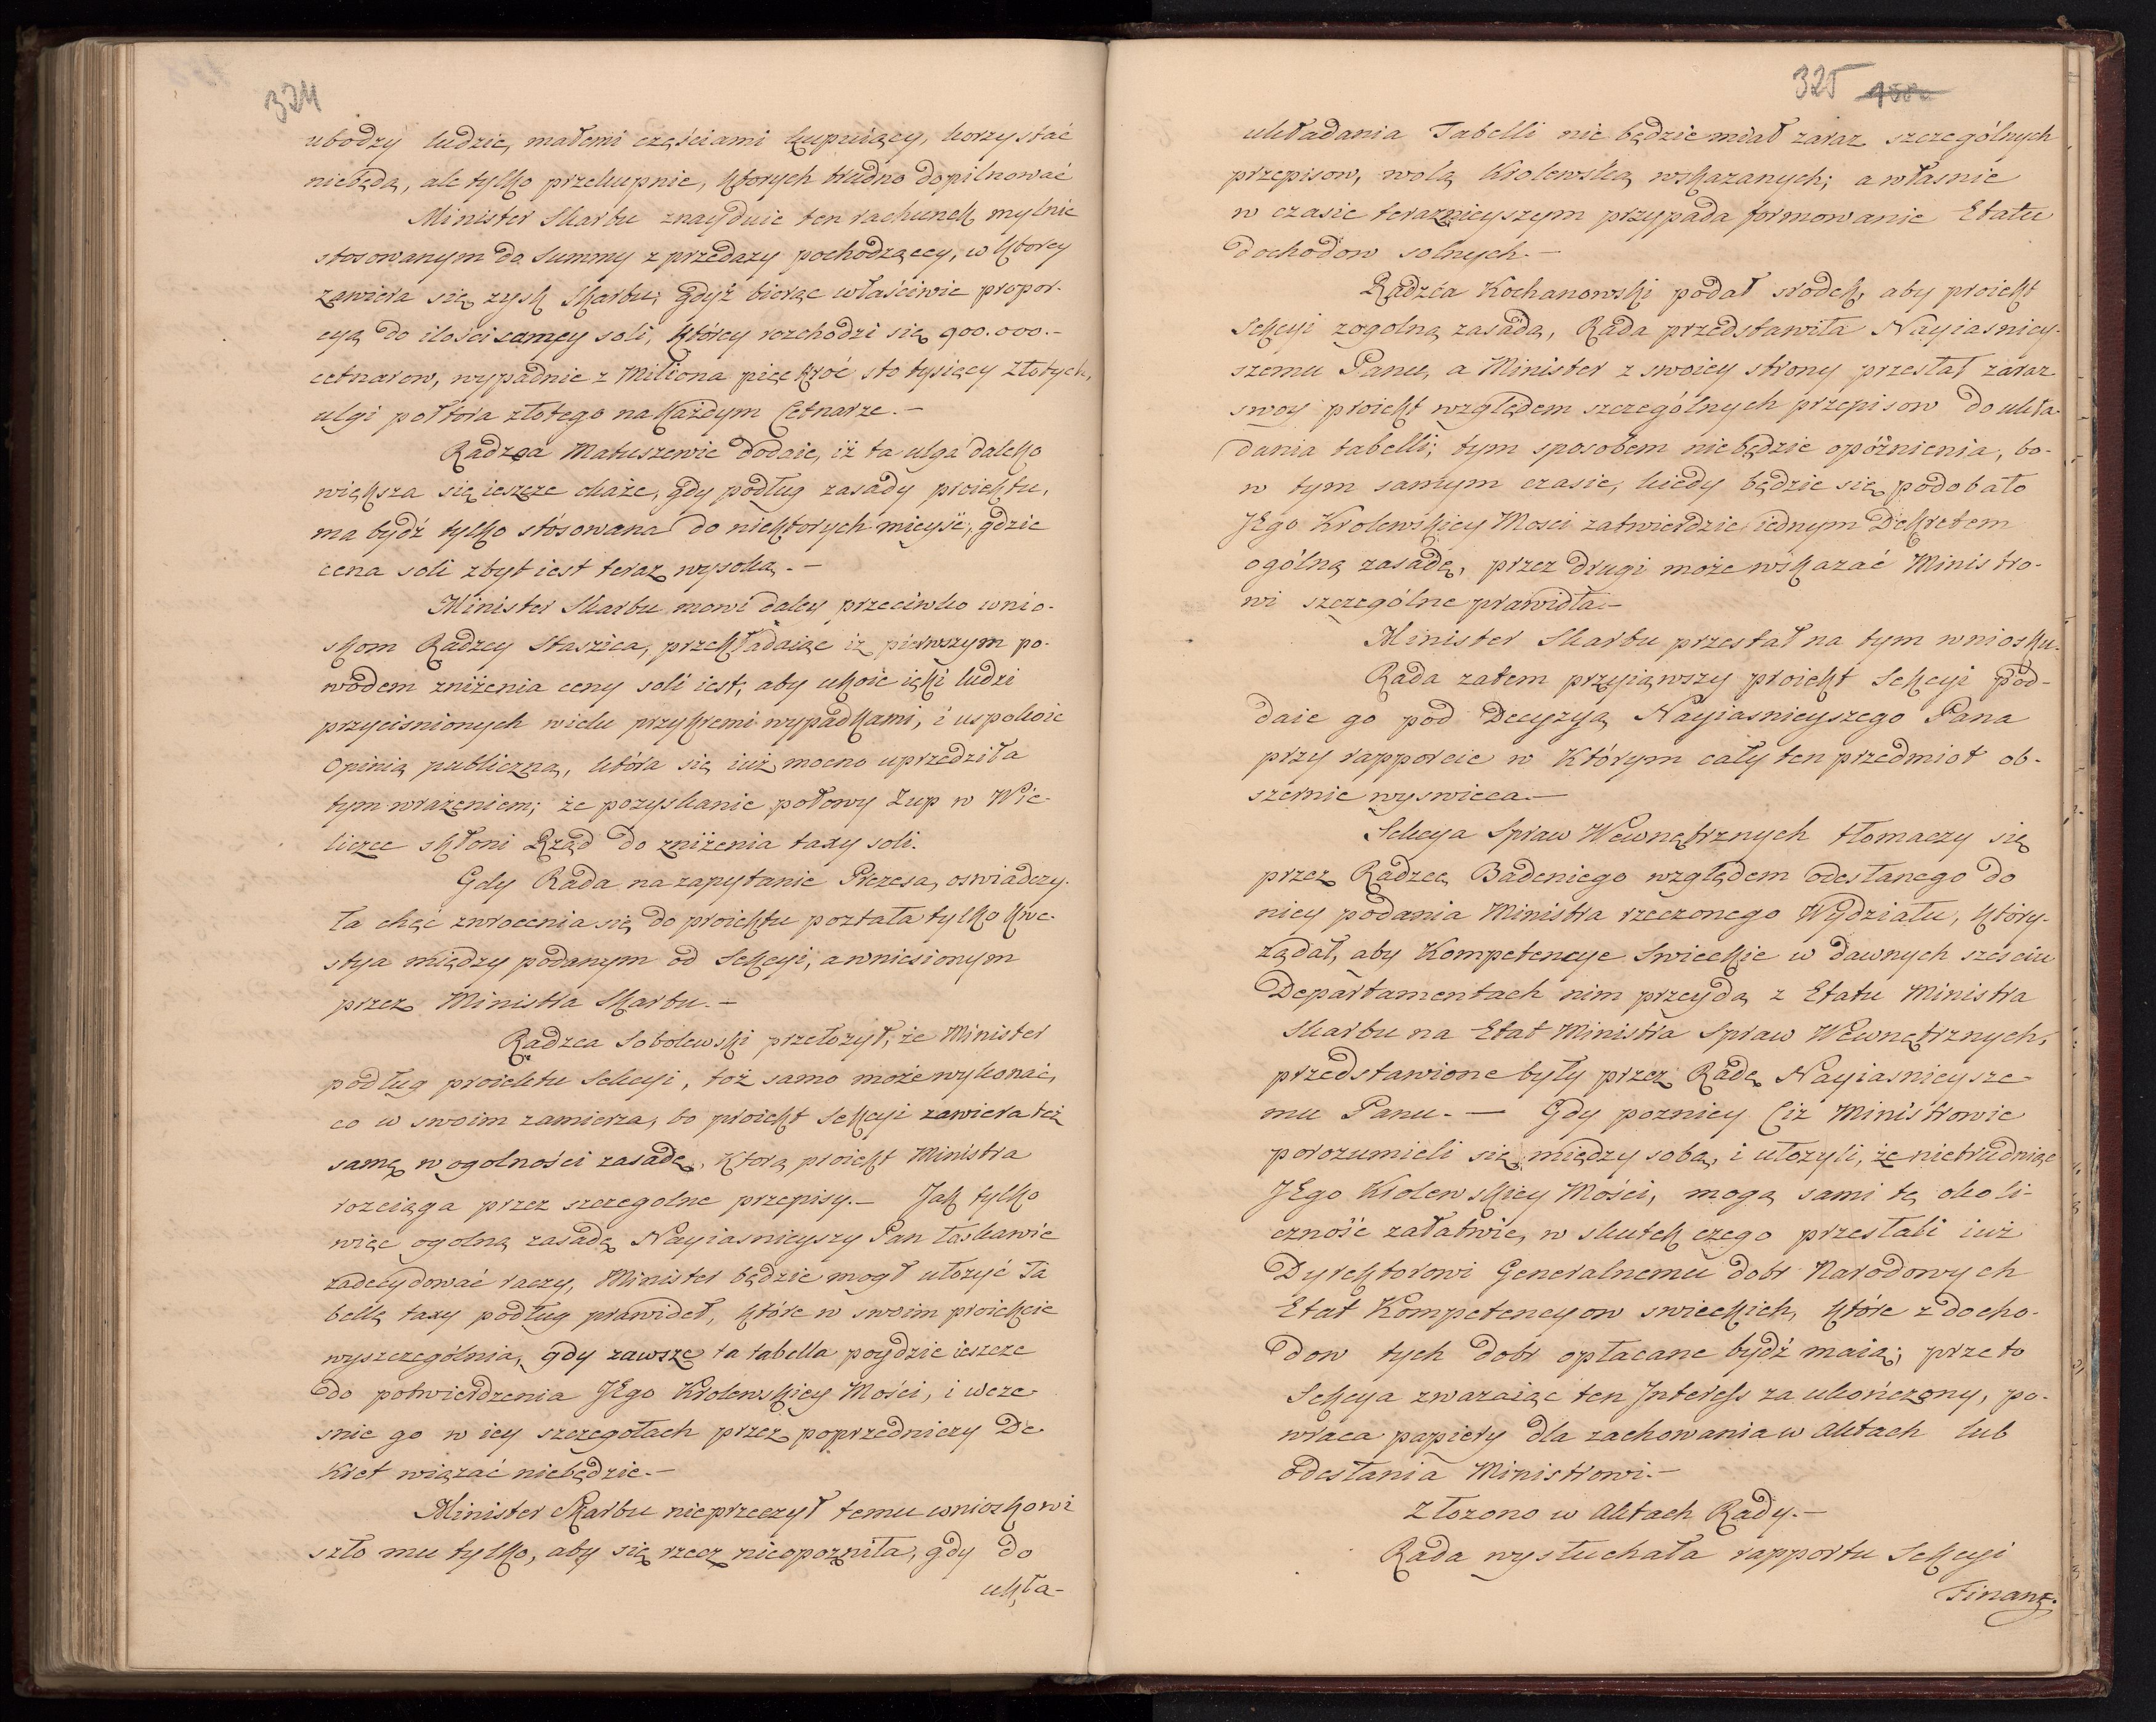 324
ubodzy ludzie, małemi częściami kupuiący, korzystać
niebędą, ale tylko przekupnie, ktorych trudno dopilnować
Minister Skarbu znayduie ten rachunek mylnie
stosowanym do Summy z przedazy pochodzącey, w ktorey
zawiera się zysk Skarbu; gdyż biorąc właściwie propor-
cyą do ilości samey soli, którey rozchodzi się 900.000.-
cetnarow, wypadnie z Miliona pięckroć sto tysięcy Złotych,
ulgi połtora złotego na każdym Cetnarze.-
Radzca Matuszewic dodaie, iż ta ulga daleko
większa się ieszcze okaże, gdy podług zasady proiektu,
ma bydź tylko stósowana do niektorych mieysc, gdzie
cena soli zbyt iest teraz wysoka.-
Minister Skarbu mowi daley przeciwko wnio-
skom Radzcy Staszica, przekładaiąc iż pierwszym po-
wodem zniżenia ceny soli iest, aby ukoić ięki ludzi
przyciśnionych wielu przykremi wypadkami, i uspokoić
Opinią publiczną, która się iuż mocno uprzedziła
tym wrażeniem; że pozyskanie połowy Żup w Wie-
liczce skłoni Rząd do zniżenia taxy soli.
Gdy Rada na zapytanie Prezesa, oswiadczy-
ła chęć zwrocenia się do proiektu poztała tylko kwe-
stya między podanym od Sekcyi, a wniesionym
przez Ministra Skarbu.-
Radzca Sobolewski przełożył, że Minister
podług proiektu Sekcyi, toż samo może wykonać,
co w swoim zamierza, bo proiekt Sekcyi zawiera też
samę w ogolności zasadę, którą proiekt Ministra
rozciąga przez szczegolne przepisy.- Jak tylko
więc ogolną zasadę Nayiasnieyszy Pan łaskawie
zadecydować raczy, Minister będzie mogł ułożyć Ta
bellę taxy podług prawideł, które w swoim proiekcie
wyszczególnia, gdy zawsze ta tabella poydzie ieszcze
do potwierdzenia JEgo Krolewskiey Mości, i wcze-
snie go w iey szczegołach przez poprzedniczy De-
kret wiązać niebędzie.-
Minister Skarbu nieprzeczył temu wnioskowi
szło mu tylko, aby się rzecz nieopozniła, gdy do
ukła-
325
układania Tabelli nie będzie miał zaraz szczególnych
przepisow, wolą Krolewską wskazanych; a własnie
w czasie teraznieyszym przypada formowanie Etatu
dochodow solnych.-
Radzca Kochanowski podał srodek, aby proiekt
Sekcyi z ogolną zasadą, Rada przedstawiła Nayiasniey-
szemu Panu, a Minister z swoiey strony przesłał zaraz
swoy proiekt względem szczególnych przepisow do ukła-
dania tabelli; tym sposobem niebędzie opóźnienia, bo-
w tym samym czasie, kiedy będzie się podobało
JEgo Krolewskiey Mosci zatwierdzić iednym Dekretem
ogólną zasadę, przez drugi może wskazać Ministro-
wi szczególne prawidła.-
Minister Skarbu przestał na tym wniosku.
Rada zatem przyiąwszy proiekt Sekcyi pod-
daie go pod Decyzyą Nayiasnieyszego Pana
przy rapporcie w Którym cały ten przedmiot ob-
szernie wyswieca.-
Sekcya Spraw Wewnętrznych tłomaczy się
przez Radzcę Badeniego względem odesłanego do
niey podania Ministra rzeczonego Wydziału, który-
żądał, aby Kompetencye Swieckie w dawnych szesciu
Departamentach nim przeydą z Etatu Ministra
Skarbu na Etat Ministra Spraw Wewnętrznych,
przedstawione były przez Radę Nayiasnieysze-
mu Panu.- — Gdy pozniey Ciż Ministrowie
porozumieli się między sobą, i ułożyli, że nietrudniąc
JEgo Krolewskiey Mości, mogą sami tę okoli-
czność załatwić, w skutek czego przesłali iuż
Dyrektorowi Generalnemu dobr Narodowych
Etat Kompetencyow swieckich, które z docho-
dow tych dobr opłacane bydź maią; przeto
Sekcya zwazaiąc ten Interess za ukończony, po-
wraca papiery dla zachowania w Aktach lub
odesłania Ministrowi.-
Złożono w Aktach Rady.-
Rada wysłuchała rapportu Sekcyi
Finans.